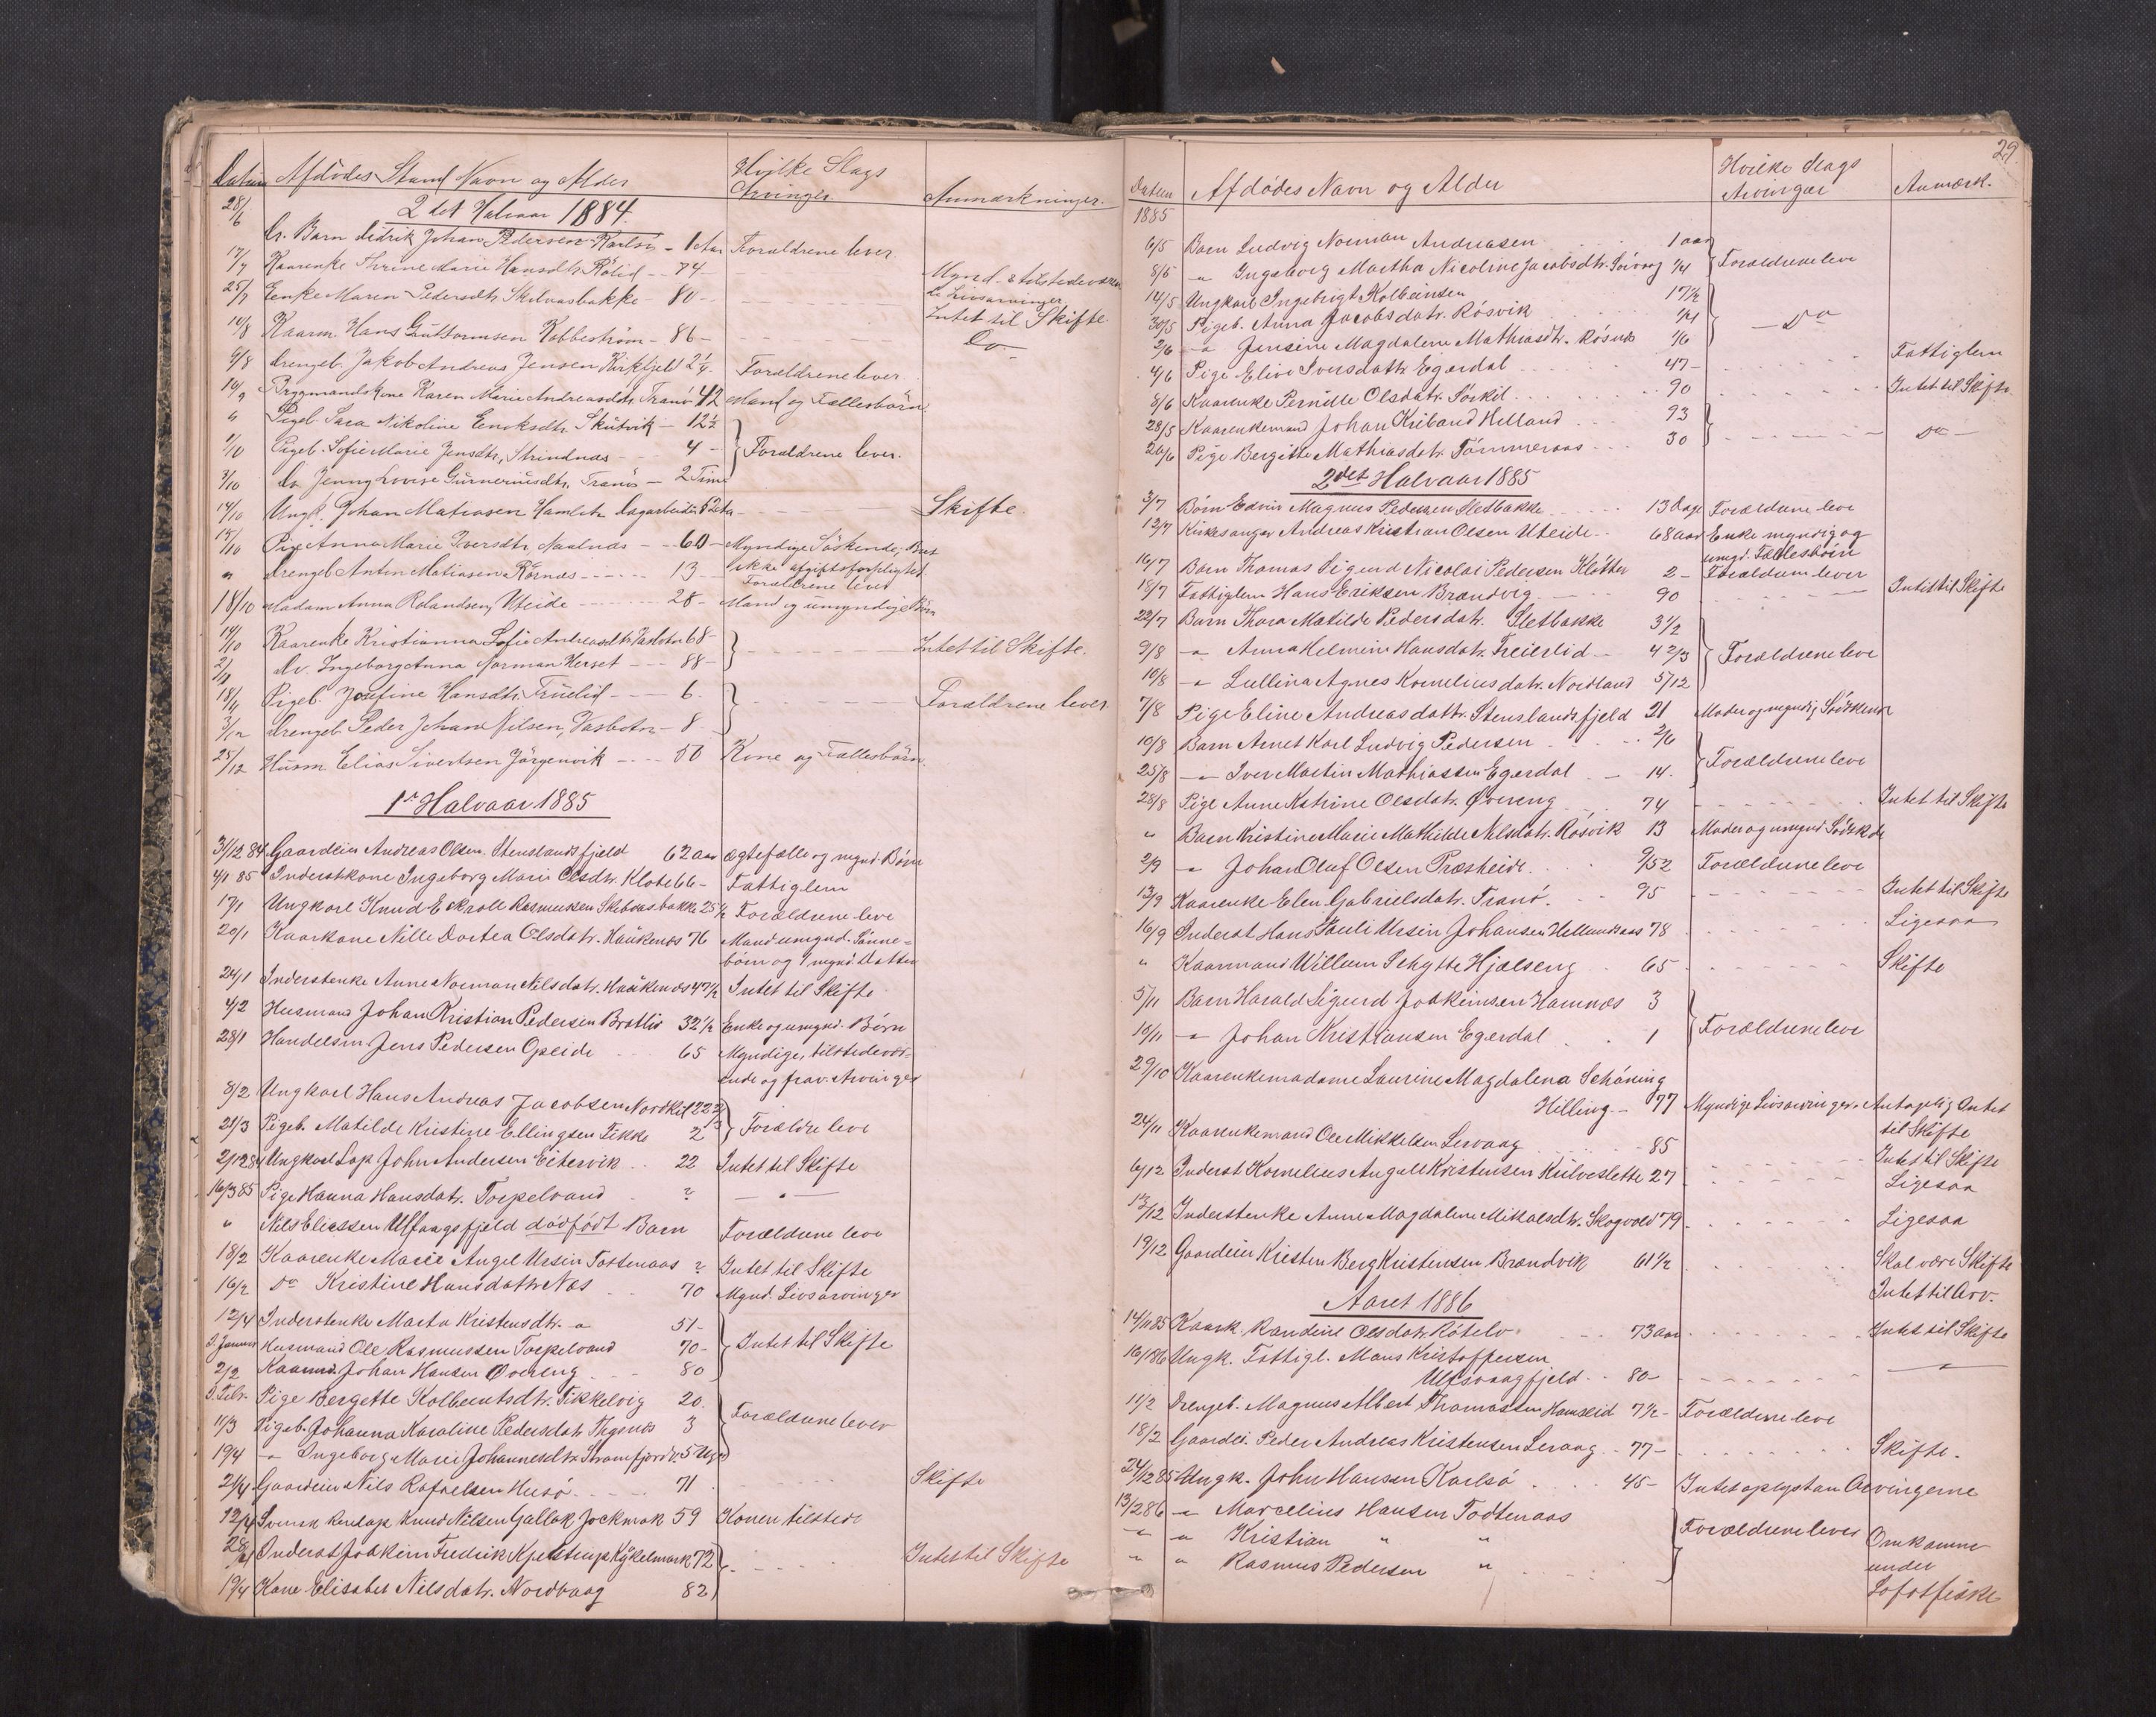 Datum Afdödes Stand Navn og Alder Hvilke Slags Arvinger Anmærkninger.
2det Halvaar 1884.
28/6 Dr. Barn Didrik Johan Pedersen Karlsö - 1 Aar Forældrene lever.
17/7 Kaarenke Thrine Marie Hansdtr. Rölid - 74 -
25/7 Enke Maren Pedersdtr. Skilvasbakke - 80 - Mynd. & tilstedeværen
de Livsarvinger
10/8 Kaarm. Hans Guttormsen Kobbeström - 86 - Intet til Skifte.
9/8 Drengeb. Jakob Andreas Jensen Kirkfjeld 2¼. Forældrene lever. Do -
10/9 Brygmandskone Karen Marie Andreasdtr. Tranö 42 Mand og Fællesbörn.
" Pigeb. Sara Nikoline Enoksdtr. Skutvik - 12½
1/10 Pigeb. Sofie Marie Jensdtr, Strindnæs - 4 - Forældrene lever.
3/10 Do. Jenny Lovise Gurneriusdtr. Tranö - 2 Time
14/10 Ungk. Johan Matiasen Hamleth Dagarbeider 62 Aar Skifte.
15/10 Pige Anna Marie Iversdtr. Naalnæs - 60 - Myndige Söskende, Boet
ikke afgiftsforpligtet.
" Drengeb. Anton Matiasen Rösnæs - 13 - Forældrene lever
18/10 Madam Anna Rolandsen, Uteide - 28 - Mand og umyndige Börn
14/10 Kaarenke Kristianna Sofie Andreasdtr. Vasbotn 68 - Intet til Skifte.
2/11 Do. Ingeborg Anna Norman Herset - 88 -
18/11 Pigeb. Josefine Hansdtr. Fruelid - 6. Forældrene lever
3/12 Drengeb. Peder Johan Nilsen, Vasbotn - 8
25/12 Husm. Elias Sivertsen Jörgenvik - 50 Kone og Fællesbörn.
1ste Halvaar 1885
31/12 84 Gaardeier Andreas Olsen. Stenslandsfjeld 62 aar Ægtefælle og mynd. Börn
4/1 85 Inderstkone Ingeborg Marie Olsdtr. Klote 66 - Fattiglem
17/1 Ungkarl Knud Eskroll Rasmussen Skilvasbakke 25½ Forældrene leve
20/1 Kaarkone Nille Dortea Olsdatr. Haukenæs 76 Mand umynd. Sönne-
börn og 1 mynd. Datter
24/1 Inderstenke Anne Norman Nilsdatr. Haukenæs 47½ Intet til Skifte
4/2 Husmand Johan Kristian Pedersen Bratlid 32½ Enke og umynd. Börn
28/1 Handelsm. Jens Pedersen Opeide 65 Myndige, tilstedevær-
ende og frav. Arvinger
8/2 Ungkarl Hans Andreas Jacobsen Nordkil 22 2/3
21/3 Pigeb. Matilde Kristine Ellingsen Fikke 2 Forældre leve
2/12 84 Ungkarl Lap John Andersen Eitervik 22 Intet til Skifte
16/3 85 Pige Hanna Hansdatr. Torpelvand ? — " —
" Nils Eliassen Ulfsvaagsfjeld dödfödt Barn Forældrene leve
18/2 Kaarenke Marie Angel Ursin Tostenaas ? Intet til Skifte
16/2 Do Kristine Hansdattr. Nes 70 Mynd. Livsarvinger
12/4 Inderstenke Marta Kristensdtr. " 51 -
I Januar Husmand Ole Rasmussen Torpelvand 70 - Intet til Skifte
2/2 Kaarmd. Johan Hansen Övereng 80
I. Febr. Pige Bergette Kolbentsdtr. Fikkelvig 20.
11/3 Pigeb. Johanna Karoline Pedersdatr. Thysnes 3 Forældrene lever
19/4 " Ingeborg Marie Johannesdtr. Strømfjord 5 Uger
21/4 Gaardeier Nils Rafaelsen Husö 71 Skifte
12/4 Svensk Renlap Knud Nilsen Gallok Jockmok 59 Konen tilstede
28/4 Inderst Joakim Fredrik Kjelstrup Kykelmark 72 Intet til Skifte
19/4 Kone Elisabet Nilsdatr. Nordvaag 82
29.
Datum Afdödes Navn og Alder Hvilke Slags Arvinger Anmærk.
1885
6/5 Barn Ludvig Norman Andreasen 1 aar
8/5 " Ingeborg Martha Nicoline Jacobsdtr. Sörvaag ¼ Forældrene leve
14/5 Ungkarl Ingebrigt Kolbeinsen 17½
30/5 Pigeb. Anna Jacobsdatr. Rösvik ¼ — Do
2/6 " Jensine Magdalene Mathiasdtr. Rösnæs 1/6
4/6 Pige Elive Iversdattr. Egerdal 47 - Fattiglem
8/6 Kaarenke Pernille Olsdatr. Sörkil 90 Intet til Skifte
28/5 Kaarenkemand Johan Kriband Helland 93
20/6 Pige Bergitte Mathiasdatr. Tömmeraas 30 Do -
2det Halvaar 1885
3/7 Börn Edvin Magnus Pedersen Sletbakke 13 Dage Forældrene leve
12/7 Kirkesanger Andreas Kristian Olsen Uteide 68 aar Enke myndig og
umynd. Fællesbörn
16/7 Barn Thomas Sigurd Nicolai Pedersen Klotten 2 - Forældrene lever
18/7 Fattiglem Hans Eriksen Brændvig 90 Intet til Skifte
22/7 Barn Thora Matilde Pedersdatr. Sletbakke 3½
9/8 " Anna Helmine Hansdatr. Freierlid 4 2/3 Forældrene leve
10/8 " Lullina Agnes Korneliusdatr. Nordland 5/12
7/8 Pige Eline Andreasdattr. Stenslandsfjeld 21 Moder og myndig Södskende
10/8 Barn Arnet Karl Ludvig Pedersen 2/6
25/8 " Iver Martin Mathiassen Egerdal 14. Forældrene leve
28/8 Pige Anne Katrine Olsdatr. Øvereng 74 Intet til Skifte
" Barn Kristine Marie Mathilde Nilsdatr. Rösvik 13 Moder og umynd Södskde
2/9 " Johan Oluf Olsen Præsteide 9/52 Forældrene leve
13/9 Kaarenke Elen Gabrielsdatr. Tranö. 95 Intet til Skifte
16/9 Inderst Hans Pauli Ursin Johansen Hellandsaas 78 Ligesaa
" Kaarmand Willum Schytte Hjelseng 65 Skifte
5/11 Barn Harald Sigurd Joakimsen Hamnæs 3
10/11 " Johan Kristiansen Egerdal 1 Forældrene leve
29/10 Kaarenkemadame Laurine Magdalena Schöning
Hilling - 77 Myndige Livsarvinger. Antagelig Intet
til Skifte
24/11 Kaarenkemand Ole Mikkelsen Lervaag 85 Intet til Skifte
6/12 Inderst Kornelius Angell Kristensen Kulveslette 27 Ligesaa
13/12 Inderstenke Anne Magdalene Mikalsdtr. Skogvold 79 Ligesaa
19/12 Gaardeier Kristen Berg Kristensen Brændvik 61½ Skal være Skifte
Intet til Arv.
Aaret 1886
14/11 85 Kaark. Randine Olsdatr. Rötelv 73 aar Intet til Skifte
16/1 86 Ungk. Fattigl. Mons Kristoffersen
Ulfsvaagfjeld 80 - — " —
11/2 Drengeb. Magnus Albert Thomassen Hamseid 7½ - Forældrene leve
18/2 Gaardei. Peder Andreas Kristensen Lervaag 77 - Skifte.
24/12 85 Ungk. John Hansen Karlsö 45 - Intet oplyst om Arvingerne
13/2 86 " Marcelius Hansen Todtenaas
" " Kristian " " Forældrene lever Omkomne
" " Rasmus Pedersen " under
Lofotfiske